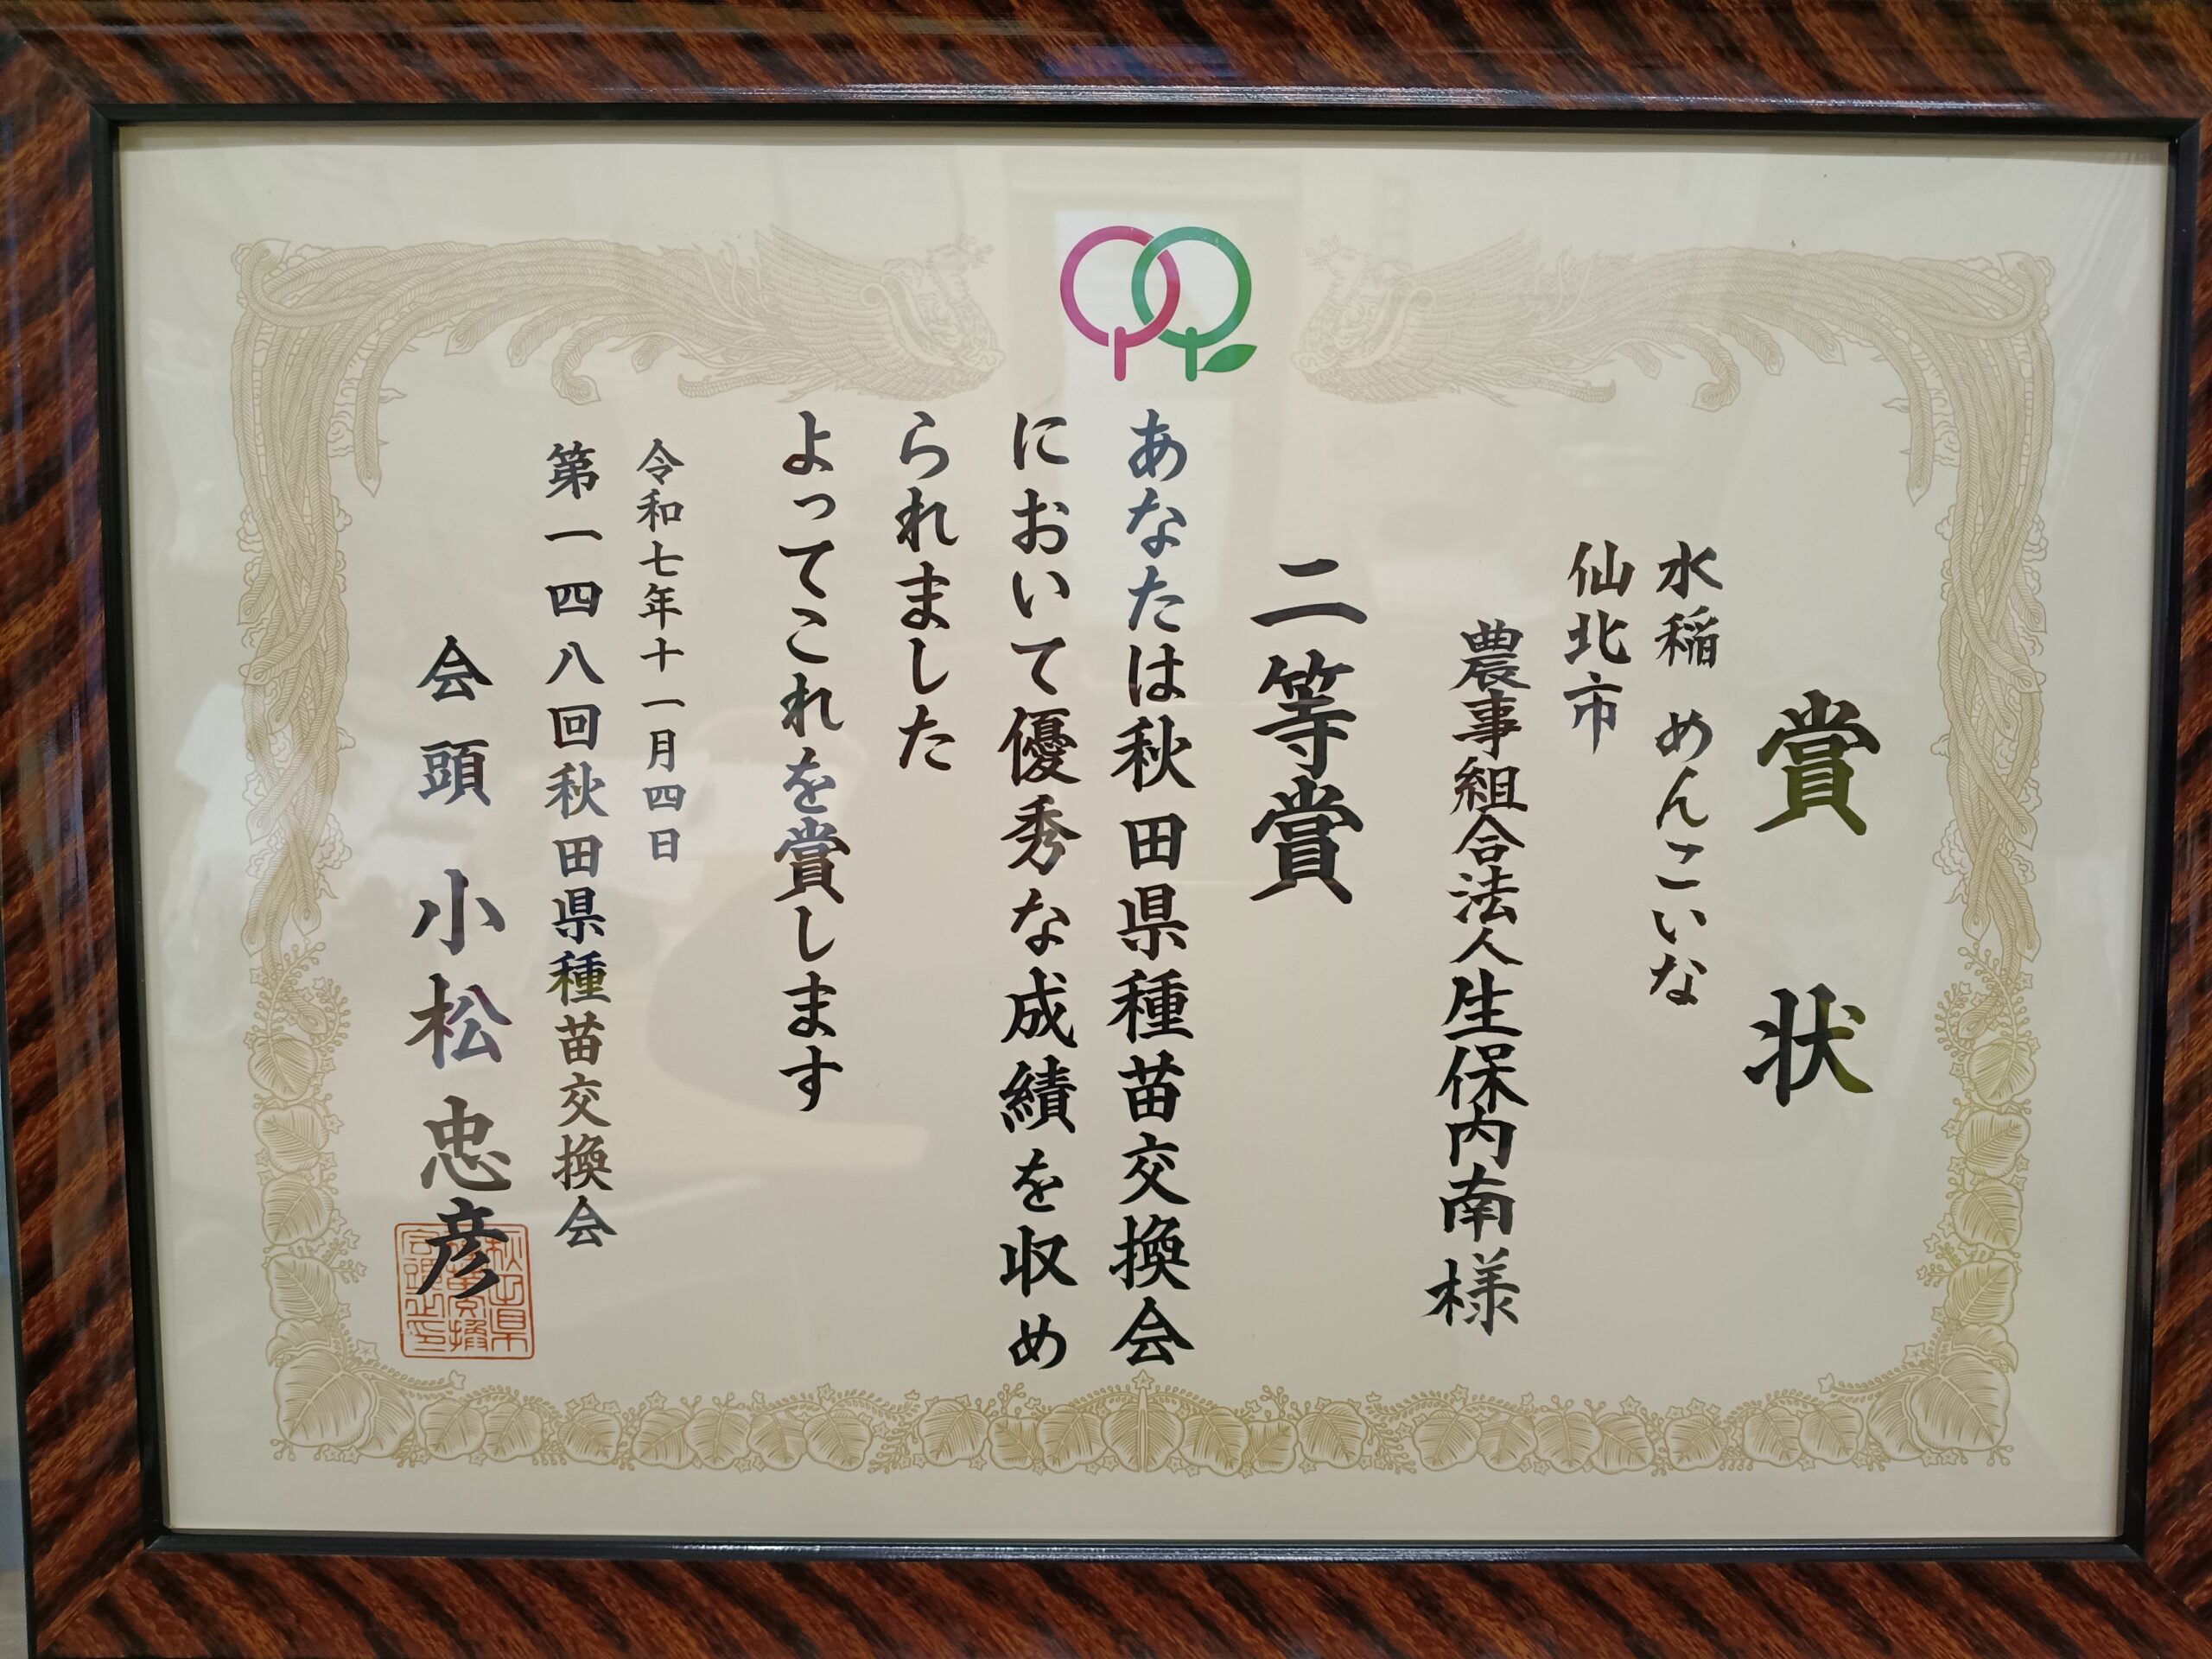 賞状
水稲 めんこいな
仙北市
農事組合法人生保内南様
二等賞
あなたは秋田県種苗交換会
において優秀な成績を収め
られました
よってこれを賞します
令和七年十一月四日
第一四八回秋田県種苗交換会
会頭 小松忠彦